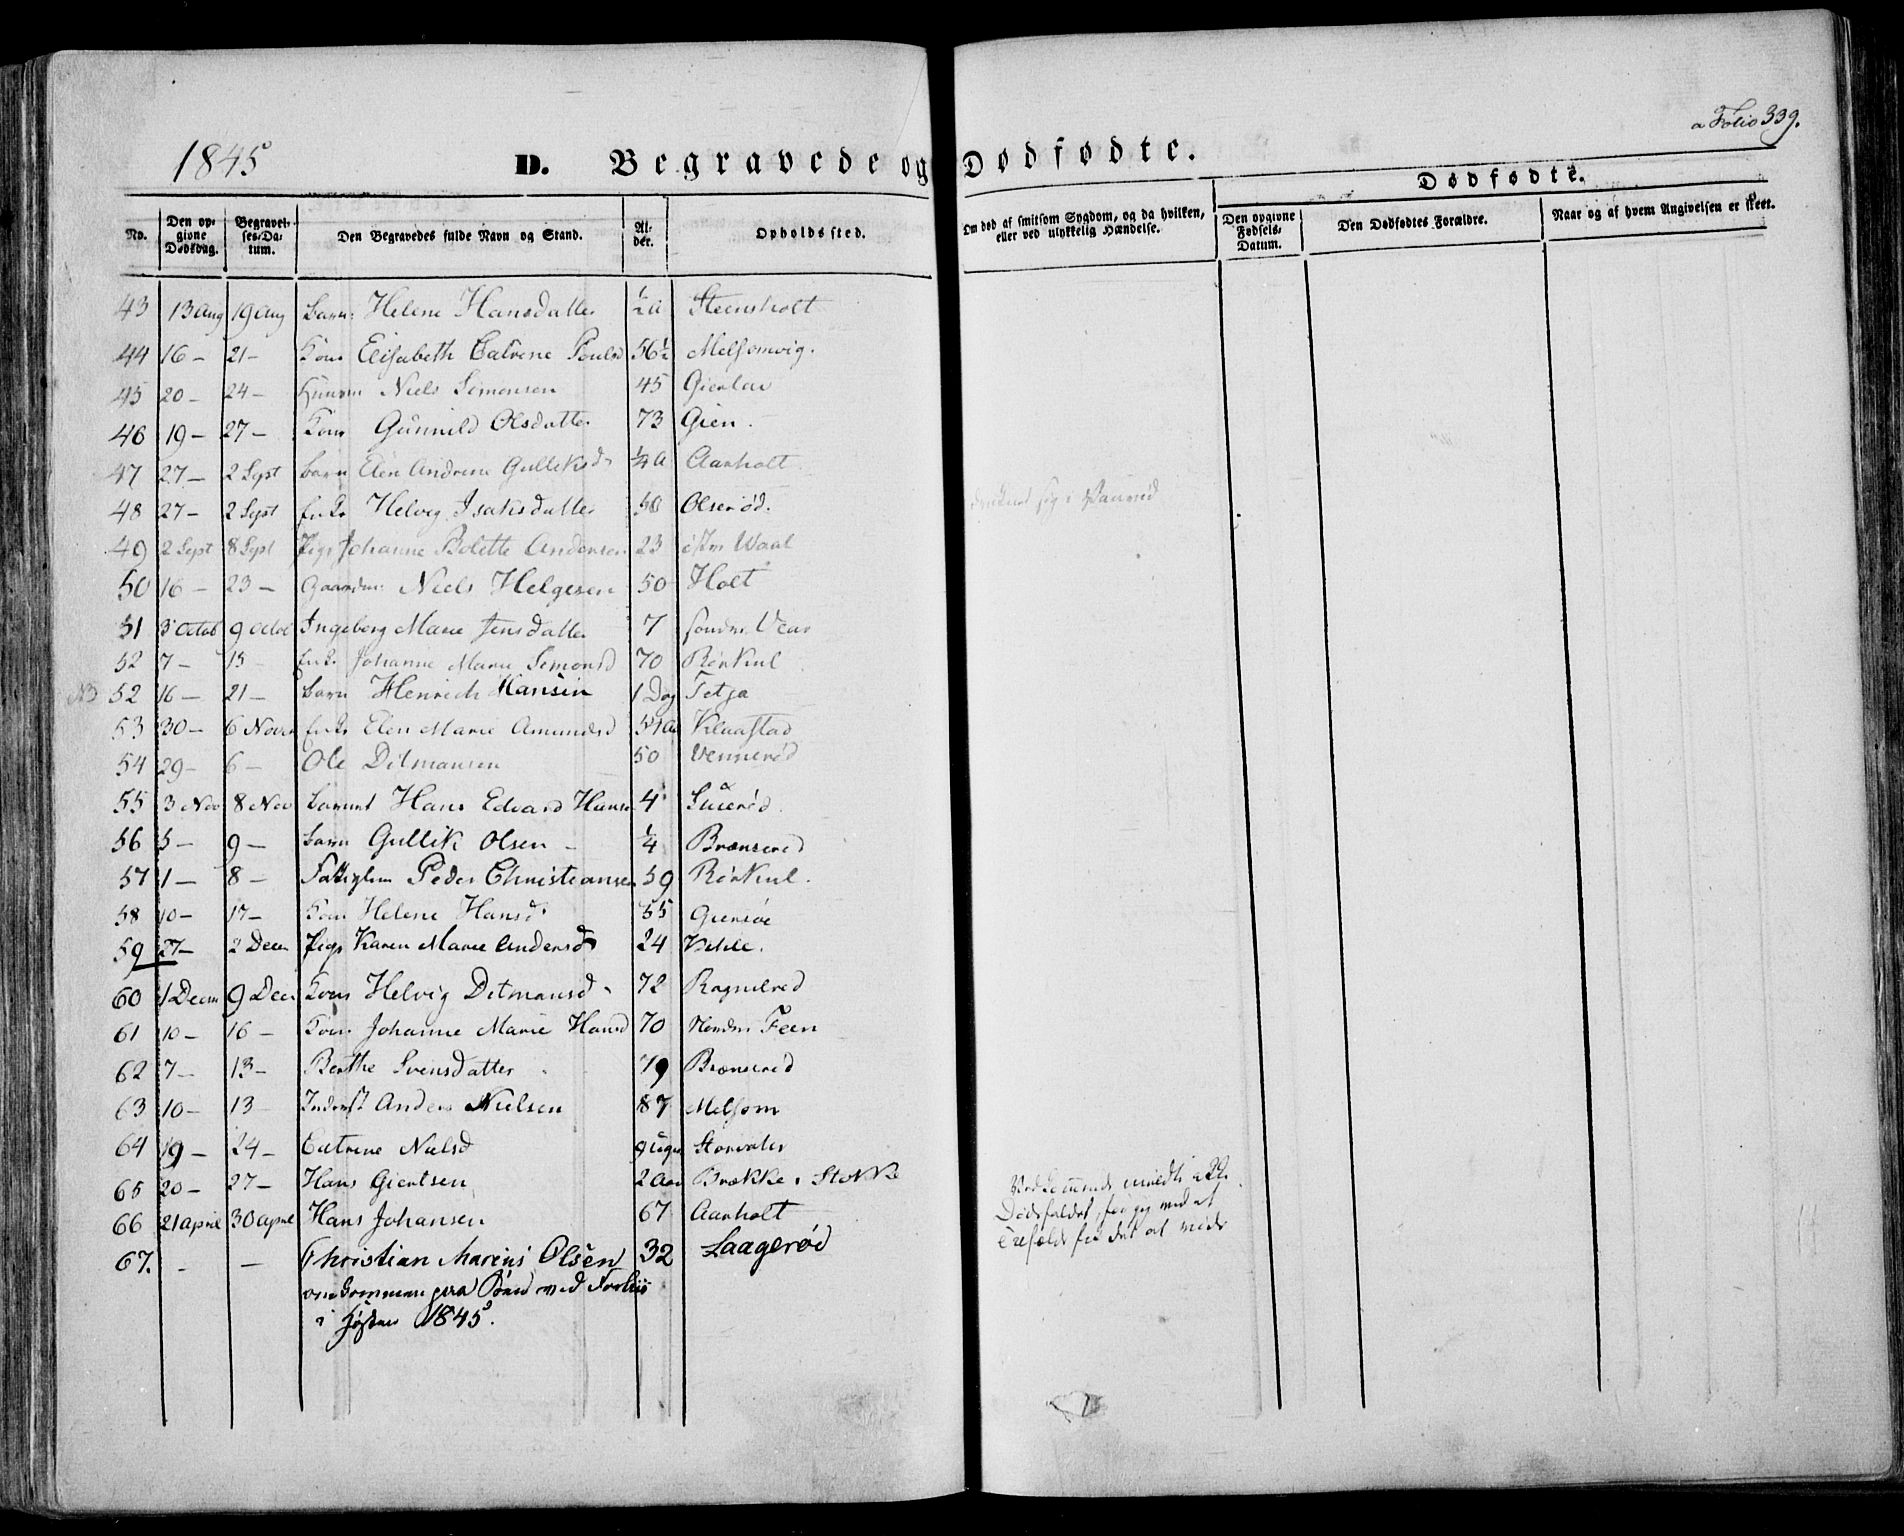 a Folio 339.
1845
D. Begravede og Dødfødte.
Dødfødte.
No. Den opgivne Dødsdag. Begravelses-Datum. Den Begravedes fulde Navn og Stand. Alder. Opholdssted. Om død af smitsom Sygdom, og da hvilken, eller ved ulykkelig Hændelse. Den opgivne Fødsels-Datum. Den Dødfødtes Forældre. Naar og af hvem Angivelsen er skeet.
43 13 Aug 19 Aug Barn Helene Hansdatter ½ A Steensholt
44 16 – 21 – Kone Elisabeth Catrine Poulsd 56½ Melsomvig.
45 20 – 24 – Huusm Niels Simonsen 45 Gierlau
46 19 – 27 – Kone Gunnild Olsdatter 73 Gien.
47 27 – 2 Sept Barn Elen Andrine Gulliksd ¼ A Aarholt
48 27 – 2 Sept Enke Helvig Isaksdatter 50 Olserød. sig i
49 2 Sept 8 Sept Pige Johanne Bolette Andersen 23 østre Waal
50 16 – 23 – Gaardm. Niels Helgesen 50 Holt
51 3 Octob 9 Octob Ingeborg Marie Jensdatter 7 søndre Vear
52 7 – 13 – Enke Johanne Marie Simonsd 70 Rørkul
NB 52 16 – 21 – Barn Henrich Hansen 1 Dag Tetja
53 30 – 6 Novr Enke Elen Marie Amundsd 54 Aa Klaastad
54 29 – 6 – Ole Ditmansen 50 Vennerød
55 3 Nov 8 Nov Barnet Hans Edvard Hansen 4 Suerød.
56 5 – 9 – Barn Gullik Olsen – ¼ Brænnerød
57 1 – 8 – Fattiglem Peder Christiansen 59 Rørkul.
58 10 – 17 – Kone Helene Hansd. 55 Giersøe
59 27 – 2 Decem Pige Karen Marie Andersd 24
60 1 Decem 9 Decm Kone Helvig Ditmansd 72 Ragnerød
61 10 – 16 – Kone Johanne Marie Hansd 70 Nordre Feen
62 7 – 13 – Berthe Svensdatter 79 Brænnerød
63 10 – 13 – Inderst Anders Nielsen 87 Melsom
64 19 – 24 – Catrine Nielsd 9 Uger
65 20 – 27 – Hans Giertsen 2 Aar Brække i Stokke
66 21 April 30 April Hans Johansen 67 Aarholt
67. – – Christian Marius Olsen 32 Laagerød
omkommen paa Søen ved
i Høsten 1845.